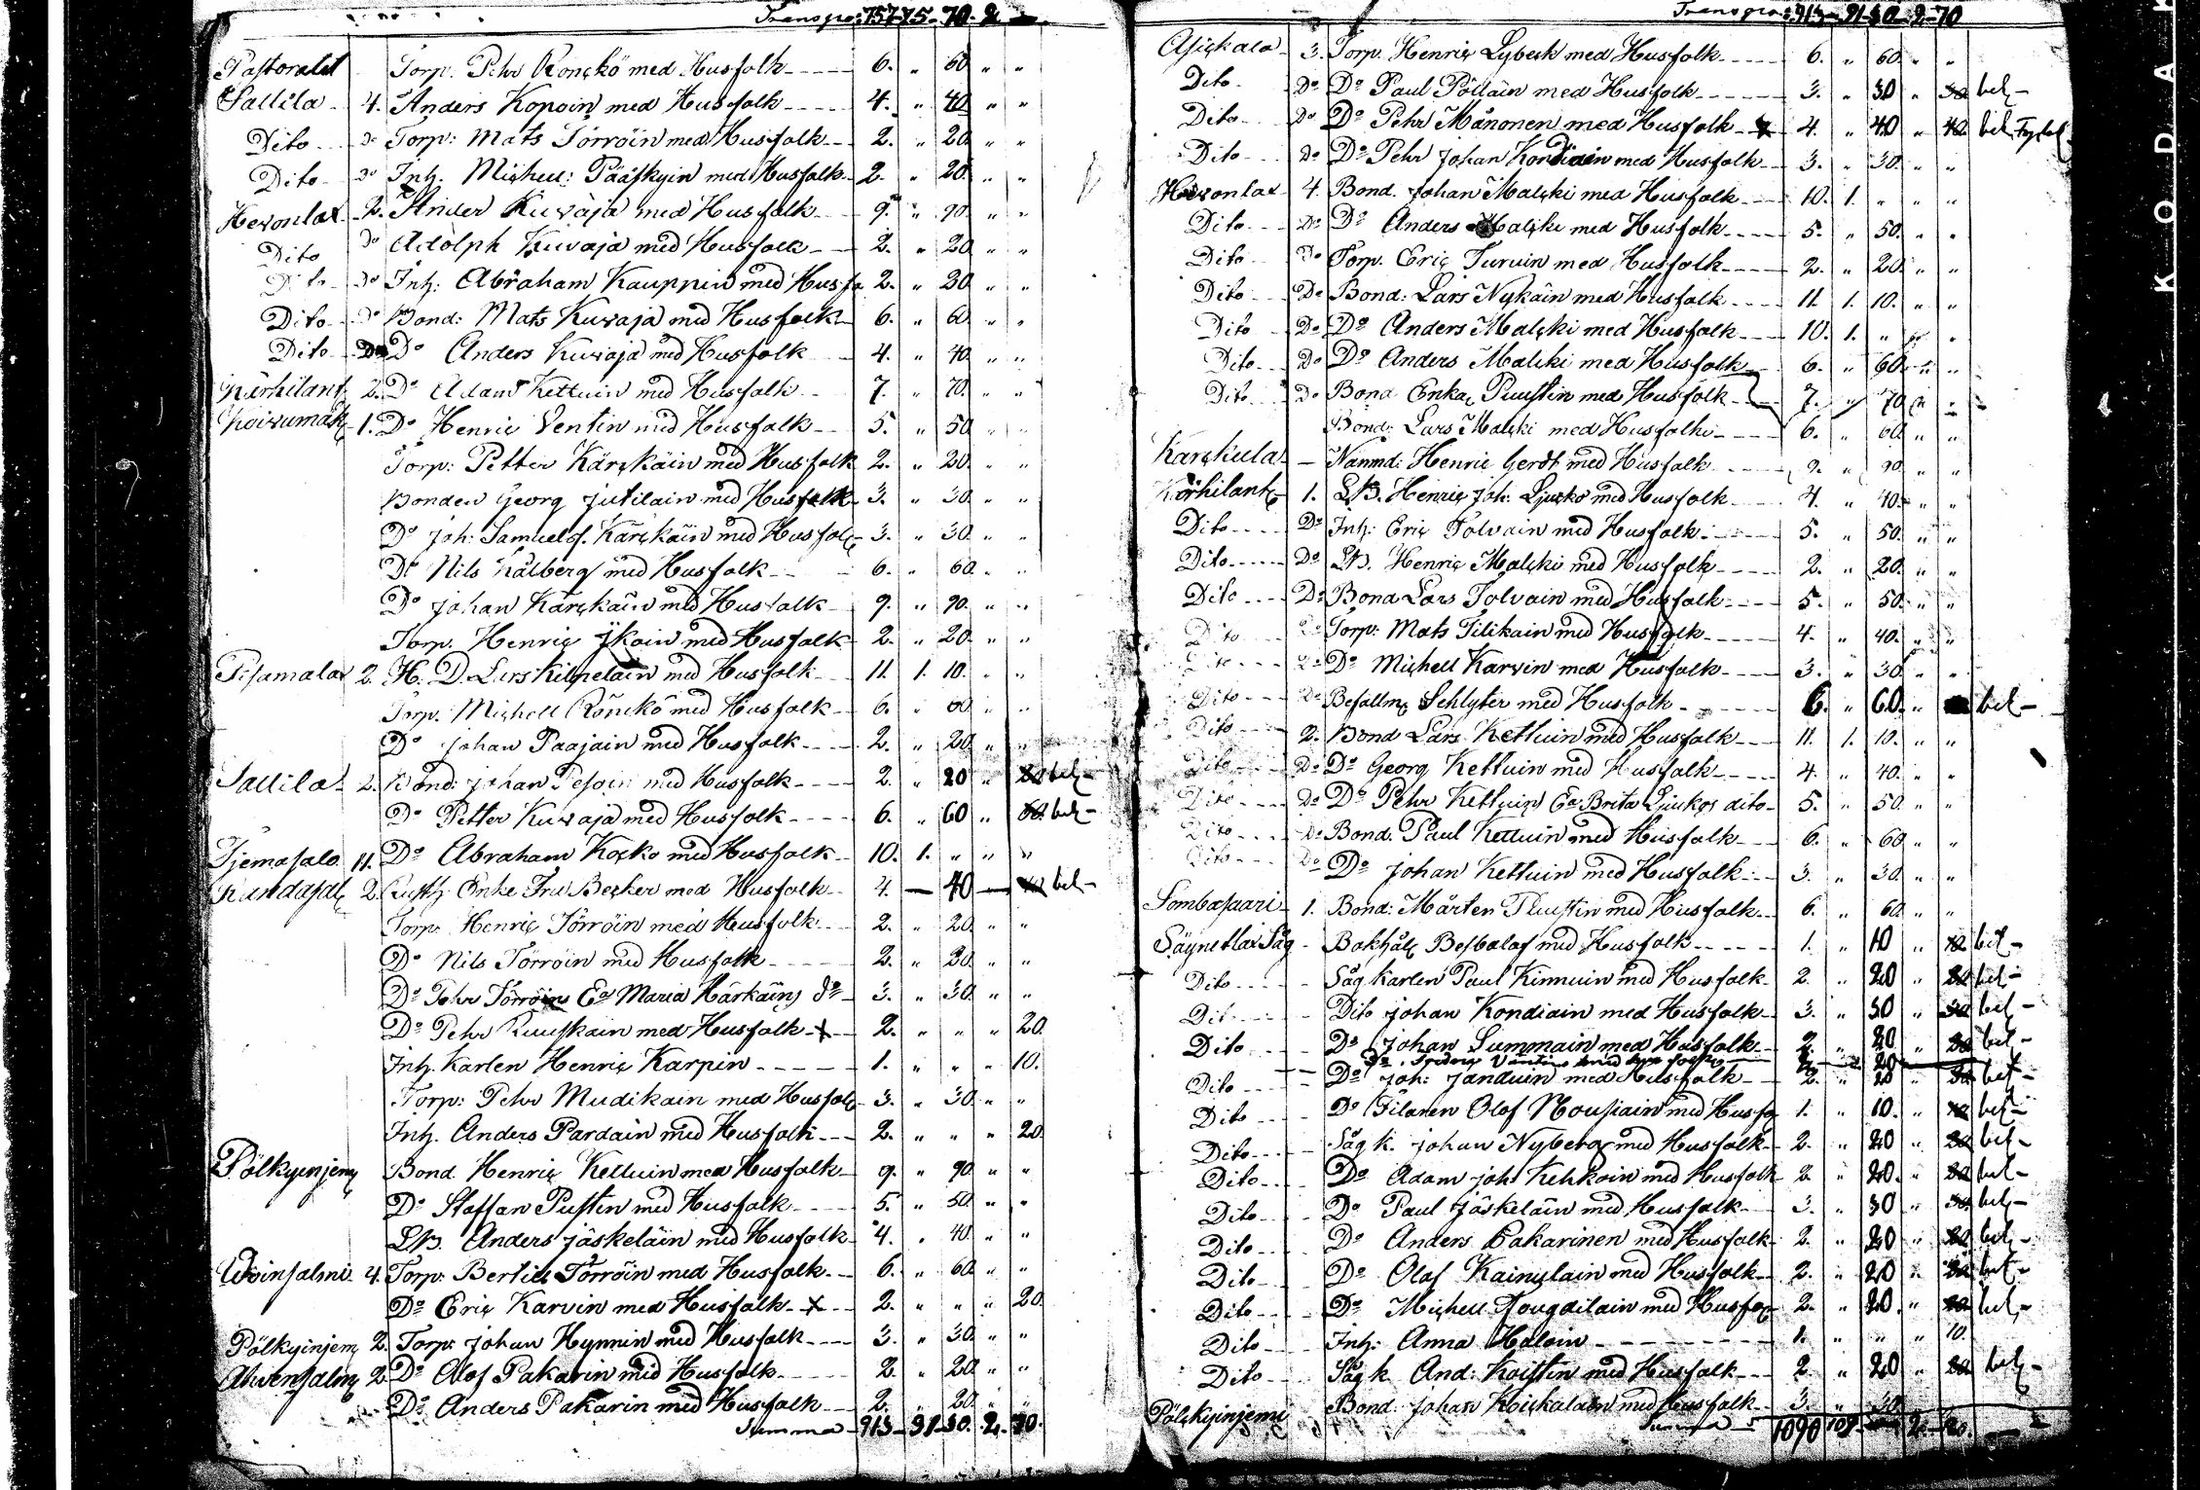 Transpo: 757 75 - 70 - 2 -
Pastoralet Torp. Pehr Ronckö med Husfolk 6. " 60 " "
Sallila 4. Anders Kopoin med Husfolk 4. " 40 " "
Dito Do Torp: Mats Törröin med Husfolk 2. " 20 " "
Dito Do Inh. Michell: Pääskyin med Husfolk 2. " 20 " "
Hevonlax 2. Ander Kuvaja med Husfolk 9. " 90 " "
Dito Do Adolph Kuvaja med Husfolk 2. " 20 " "
Dito Do Inh: Abraham Kauppin med Husfo 2. " 20 " "
Dito Do Bond: Mats Kuvaja med Husfolk 6. " 60 " "
Dito Do Do Anders Kuvaja med Husfolk 4. " 40 " "
Kärhilant 2. Do Adam Kettuin med Husfolk 7. " 70 " "
Koivumäk 1. Do Henric Ventin med Husfolk 5. " 50 " "
Torp: Petter Kärckäin med Husfolk 2. " 20 " "
Bonden Georg Jutilain med Husfolk 3. " 30 " "
Do Joh: Samuelsf. Kärckäin med Husfolk 3. " 30 " "
Do Nils Kalberg med Husfolk 6. " 60 " "
Do Johan Kärckäin med Husfolk 9. " 90 " "
Torp. Henric Ikoin med Husfolk 2. " 20 " "
Pisamalax 2. H. D. Lars Kilpeläin med Husfolk 11. 1. 10. " "
Torp. Michell Rönckö med Husfolk 6. " 60 " "
Do Johan Paajain med Husfolk 2. " 20 " "
Sallila 2. Bond: Johan Pesoin med Husfolk 2. " 20 " 20 bet
Do Petter Kuvaja med Husfolk 6. " 60 " 60 bet
Tjemasalo 11. Do Abraham Kocko med Husfolk 10. 1. " " "
Randasal 2. Enka Fru Becker med Husfolk 4. — 40 — 40 bet
Torp. Henric Törröin med Husfolk 2. " 20 " "
Do Nils Törröin med Husfolk 2. " 20 " "
Do Pehr Törröins Ea Maria Härkäin do 3. " 30 " "
Do Pehr Ruuskain med Husfolk x 2. " " " 20.
Inh. Karlen Henric Karpin 1. " " " 10.
Torp: Pehr Mudikain med Husfolk 3. " 30 " "
Inh. Anders Pardain med Husfolk 2. " " " 20
Pölkyinjem Bond. Henric Kettuin med Husfolk 9. " 90 " "
Do Staffan Pustin med Husfolk 5. " 50 " "
LB. Anders Jäskeläin med Husfolk 4. " 40 " "
Woinsalmi 4. Torp: Bertil Törröin med Husfolk 6. " 60 " "
Do Eric Karvin med Husfolk x 2. " " " 20
Pölkyinjem 2. Torp. Johan Hynnin med Husfolk 3. " 30 " "
Ahvensalm 2. Do Olof Pakarin med Husfolk 2. " 20 " "
Do Anders Pakarin med Husfolk 2. " 20 " "
Summa 913 91 30. 2. 70.
Transpo: 913 91 30 2 70
Asickala 3. Torp. Henric Lybeck med Husfolk 6. " 60 " "
Dito Do Do Paul Pöllain med Husfolk 3. " 30 " 30 bet
Dito Do Do Pehr Mänonen med Husfolk x 4. " 40 " 40 bet
Dito Do Do Pehr Johan Kondiain med Husfolk 3. " 30 " "
Hevonlax 4. Bond. Johan Malski med Husfolk 10. 1. " " "
Dito Do Do Anders Malski med Husfolk 5. " 50 " "
Dito Do Torp. Eric Turuin med Husfolk 2. " 20 " "
Dito Do Bond: Lars Nykäin med Husfolk 11. 1. 10. " "
Dito Do Do Anders Malski med Husfolk 10. 1. " " "
Dito Do Do Anders Malski med Husfolk 6. " 60 " "
Dito Do Bond Enka Puustin med Husfolk 7. " 70 " "
Bond: Lars Malski med Husfolk 6. " 60 " "
Karckula — Nämnd: Henric Gerdt med Husfolk 9. " 90 " "
Kärhilant 1. LB. Henric Joh: Ljucko med Husfolk 4. " 40 " "
Dito Do Inh: Eric Tolvain med Husfolk 5. " 50 " "
Dito Do LB. Henric Malski med Husfolk 2. " 20 " "
Dito Do Bond Lars Tolvain med Husfolk 5. " 50 " "
Dito Do Torp: Mats Tilikain med Husfolk 4. " 40 " "
Dito Do Do Michell Karvin med Husfolk 3. " 30 " "
Dito Do Befallm Schlyter med Husfolk 6. " 60 " bet
Dito 2. Bond Lars Kettuin med Husfolk 11. 1. 10. " "
Dito Do Do Georg Kettuin med Husfolk 4. " 40 " "
Dito Do Do Pehr Kettuin Ea Brita Ljuckos dito 5. " 50 " "
Dito Do Bond: Paul Kettuin med Husfolk 6. " 60 " "
Dito Do Do Johan Kettuin med Husfolk 3. " 30 " "
Sombasaari 1. Bond: Mårten Puustin med Husfolk 6. " 60 " "
Säynetlax Såg Bokhål med Husfolk 1. " 10 " 10 bet
Dito Såg karlen Paul Kinnuin med Husfolk 2. " 20 " 20 bet
Dito Dito Johan Kondiain med Husfolk 3. " 30 " 30 bet
Dito Do Johan Summain med Husfolk 2. " 20 " 20 bet
Dito Do Joh: Janduin med Husfolk 2. " 20 " 20 bet
Dito Do Filaren Olof Nousiain med Husfo 1. " 10. " 10 bet
Dito Såg k. Johan Nyberg med Husfolk 2. " 20 " 20 bet
Dito Do Adam Joh: Kehkoin med Husfolk 2. " 20. " 20 bet
Dito Do Paul Jäskeläin med Husfolk 3. " 30 " 30 bet
Dito Do Anders Pakarinen med Husfolk 2. " 20 " 20 bet
Dito Do Olof Kainulain med Husfolk 2. " 20 " 20 bet
Dito Do Michell Rougdilain med Husfo 2. " 20. " 20 bet
Dito Inh: Anna Haloin 1. " " " 10.
Dito Såg k. And: Koistin med Husfolk 2. " 20 " 20 bet
Pölckyinjemi Bond: Johan Kickalain med Husfolk 3. " 30
Summa 1090 109 2
KODAK